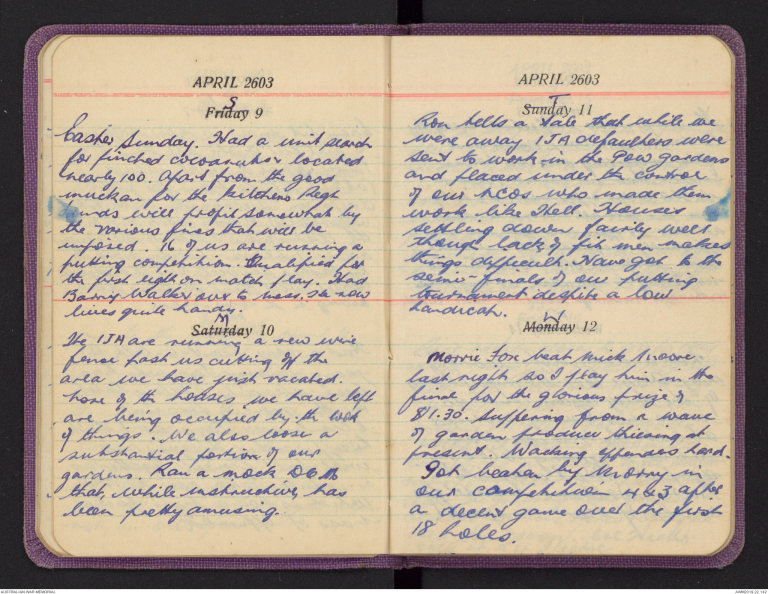 APRIL 2603
S
Friday 9
Easter Sunday. Had a unit search
for pinched cocoanuts & located
nearly 100. Apart from the good
muckan for the kitchens Regt
funds will profit somewhat by
the various fines that will be
imposed. 16 of us are running a
putting competition. Qualified for
the first eighth on match play. Had
Barry Walker over to mess. He now
lives quite handy.
M
Saturday 10
The IJA are running a new wire
fence past us cutting off the
area we have just vacated.
of the houses we have left
are being occupied by the look
of things. We also loose a
substantial portion of our
gardens. Ran a mock
that, while instructive, has
been pretty amusing.
APRIL 2603
T
Sunday 11
Ron tells a tale that while we
were away IJA defaulters were
sent to work in the Pow gardens
and placed under the control
of our NCOs who made them
work like Hell. Houses
settling down fairly well
though lack of fit men makes
things difficult. Have got to the
semi-finals of our putting
tournament despite a low
handicap.
W
Monday 12
Morrie Fox beat Mick Moore
last night so I play him in the
final for the glorious prize of
$1.30. Suffering from a wave
of garden produce thieving at
present. Wacking offenders hard.
Got beaten by Morry in
our competition 4 & 3 after
a decent game over the first
18 holes.
AUSTRALIAN WAR MEMORIAL